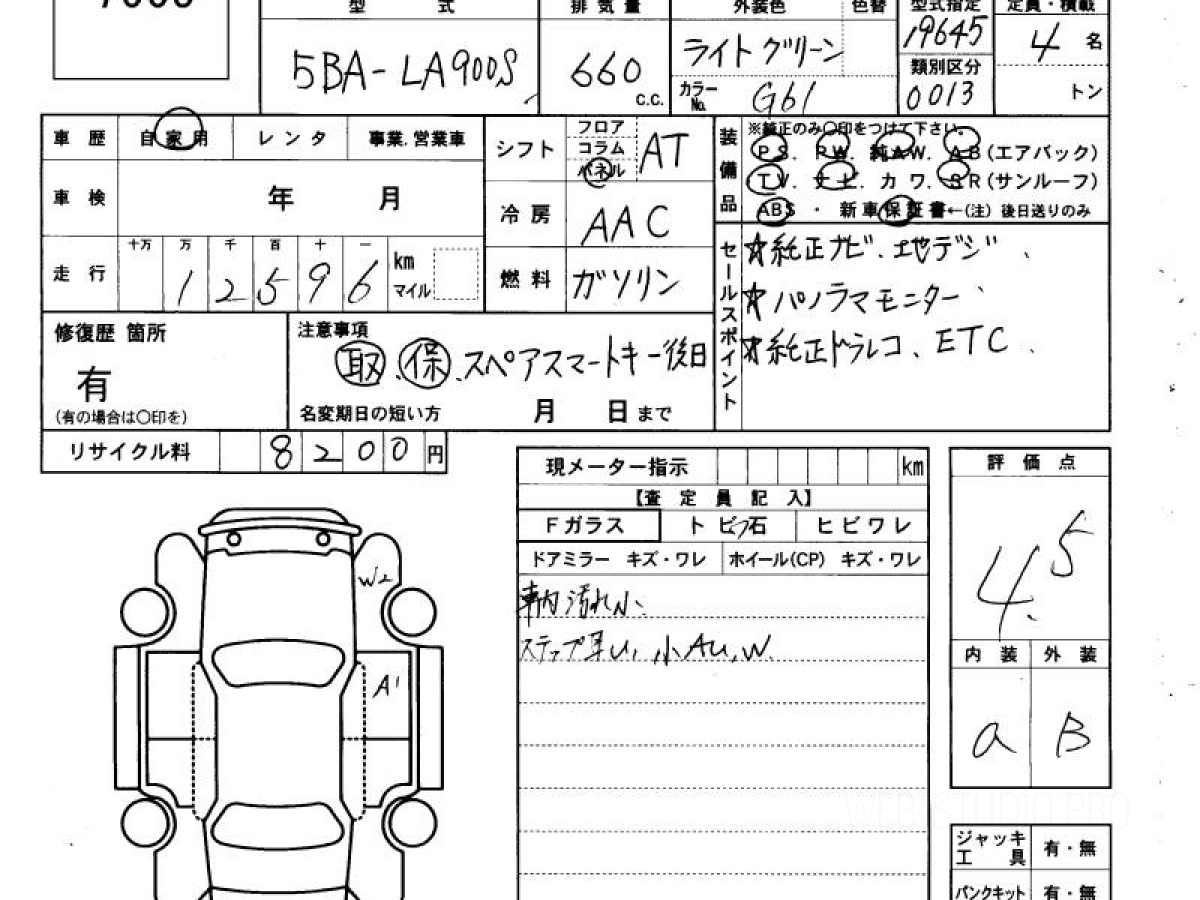 型 式 排 気 量 外装色 色替 型式指定 定員・積載
5BA-LA900S 660 c.c. ライトグリーン 19645 4 名
カラーNo. G61 類別区分 0013 トン
車 歴 自 家 用 レ ン タ 事業.営業車
シフト フロア コラム パネル AT
装備品 ※純正のみ〇印をつけて下さい。
PS. PW. 純AW. AB(エアバック)
TV. ナビ. カワ. SR(サンルーフ)
ABS ・ 新車保証書←(注) 後日送りのみ
車 検 年 月
冷 房 AAC
走 行 十万 万 千 百 十 一
12596 km マイル
燃 料 ガソリン
セールスポイント
☆純正ナビ.地デジ
☆パノラマモニター
☆純正ドラレコ、ETC
修復歴 箇所
有
(有の場合は〇印を)
注意事項
取.保.スペアスマートキー後日
名変期日の短い方 月 日 まで
リサイクル料 8200 円
現メーター指示 km
【査 定 員 記 入】
Fガラス ト ビ 石 ヒ ビ ワ レ
ドアミラー キズ・ワレ ホイール(CP) キズ・ワレ
車内汚れ小、
小AU、W
評 価 点
4.5
内 装 外 装
a B
W2
A1
ジャッキ 工 具 有・無
パンクキット 有・無
WEB STUDIO PRO